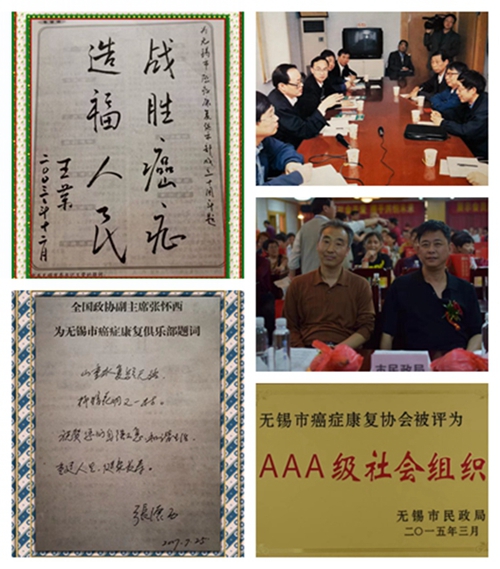 为无锡市癌症康复俱乐部成立十周年题
战胜癌症
造福人民
二〇〇三年十二月
全国政协副主席张怀西
为无锡市癌症康复俱乐部题词
山重水复疑无路
柳暗花明又一村。
自强不息、和谐生活,
重建人生、健康长寿。
张怀西
2007.7.25
市民政局
无锡市癌症康复协会被评为
AAA级社会组织
无锡市民政局
二〇一五年三月